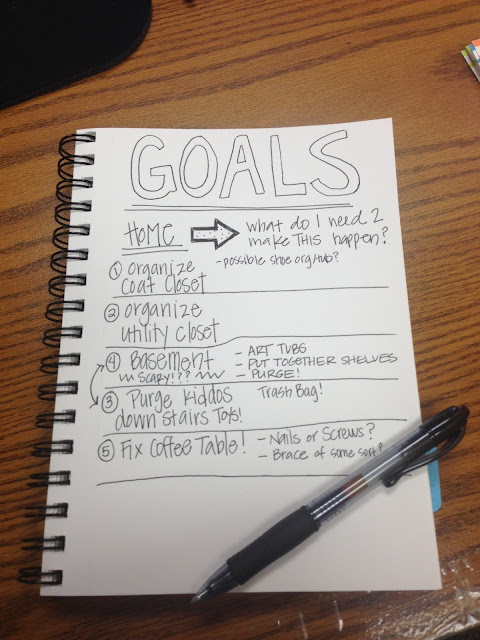 GOALS
HOME
what do I need 2
make THIS happen?
① organize
coat closet
-possible shoe org/tub?
② organize
utility closet
④ Basement
SCARY!??
- ART TUBS
- PUT TOGETHER SHELVES
- PURGE!
③ Purge Kiddos
down stairs Toys!
Trash Bag!
⑤ Fix Coffee Table!
- Nails or Screws?
- Brace of some sort?